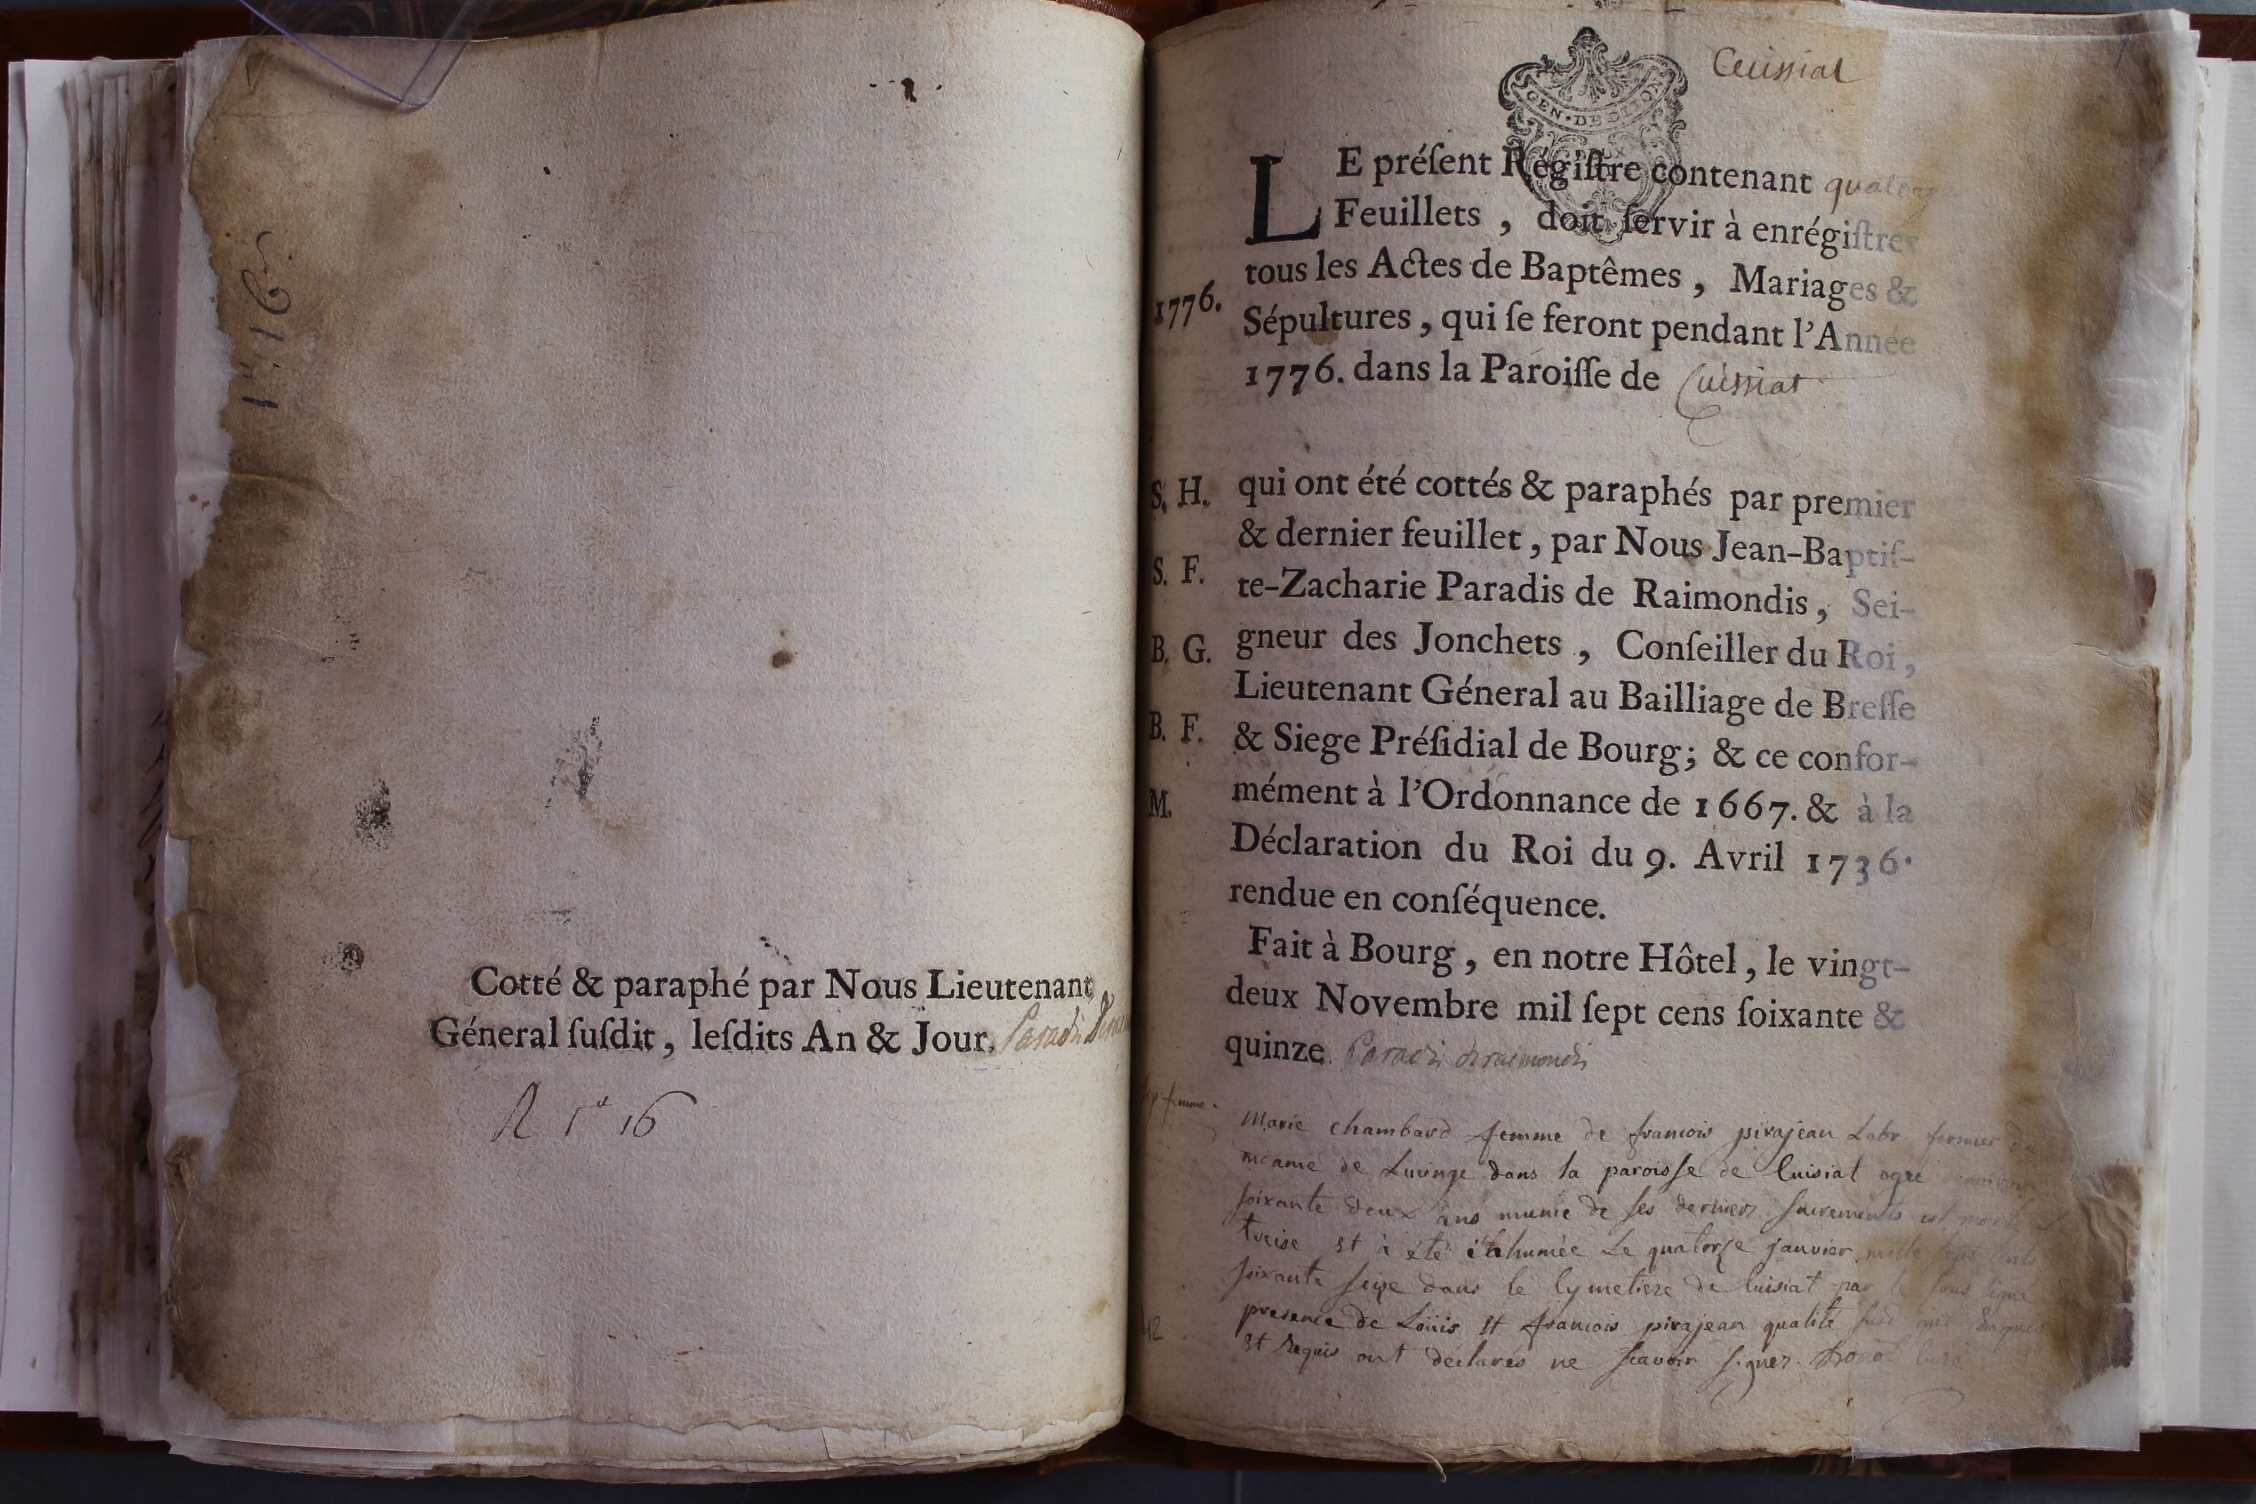 Cotté & paraphé par Nous Lieutenant
Géneral ſuſdit, leſdits An & Jour. Paradis
16
Cuissiat
GEN · DE DIJON
LE préſent Régiſtre contenant quatorze
Feuillets, doit ſervir à enrégiſtrer
tous les Actes de Baptêmes, Mariages &
1776.
Sépultures, qui ſe feront pendant l'Année
1776. dans la Paroiſſe de Cuissiat
S. H.
qui ont été cottés & paraphés par premier
& dernier feuillet, par Nous Jean-Baptiſ-
S. F.
te-Zacharie Paradis de Raimondis, Sei-
B. G.
gneur des Jonchets, Conſeiller du Roi,
Lieutenant Géneral au Bailliage de Breſſe
B. F.
& Siege Préſidial de Bourg; & ce confor-
M.
mément à l'Ordonnance de 1667. & à la
Déclaration du Roi du 9. Avril 1736.
rendue en conſéquence.
Fait à Bourg, en notre Hôtel, le vingt-
deux Novembre mil ſept cens ſoixante &
quinze. Paradis deraimondis
femme
Marie chambard femme de francois pirajean Labr fermier
de dans la paroisse de Cuisiat agee
soixante deux ans munie de ses derniers sacrements est morte
treise et à été inhumée le quatorze janvier mille sept cents
soixante seize dans le cymetiere de Cuisiat par le sous signé
presence de Loüis et francois pirajean qualité
et requis ont déclarés ne scavoir signer curé